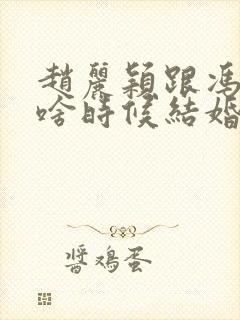 趙麗穎跟馮
啥時候結婚
醬鸡蛋